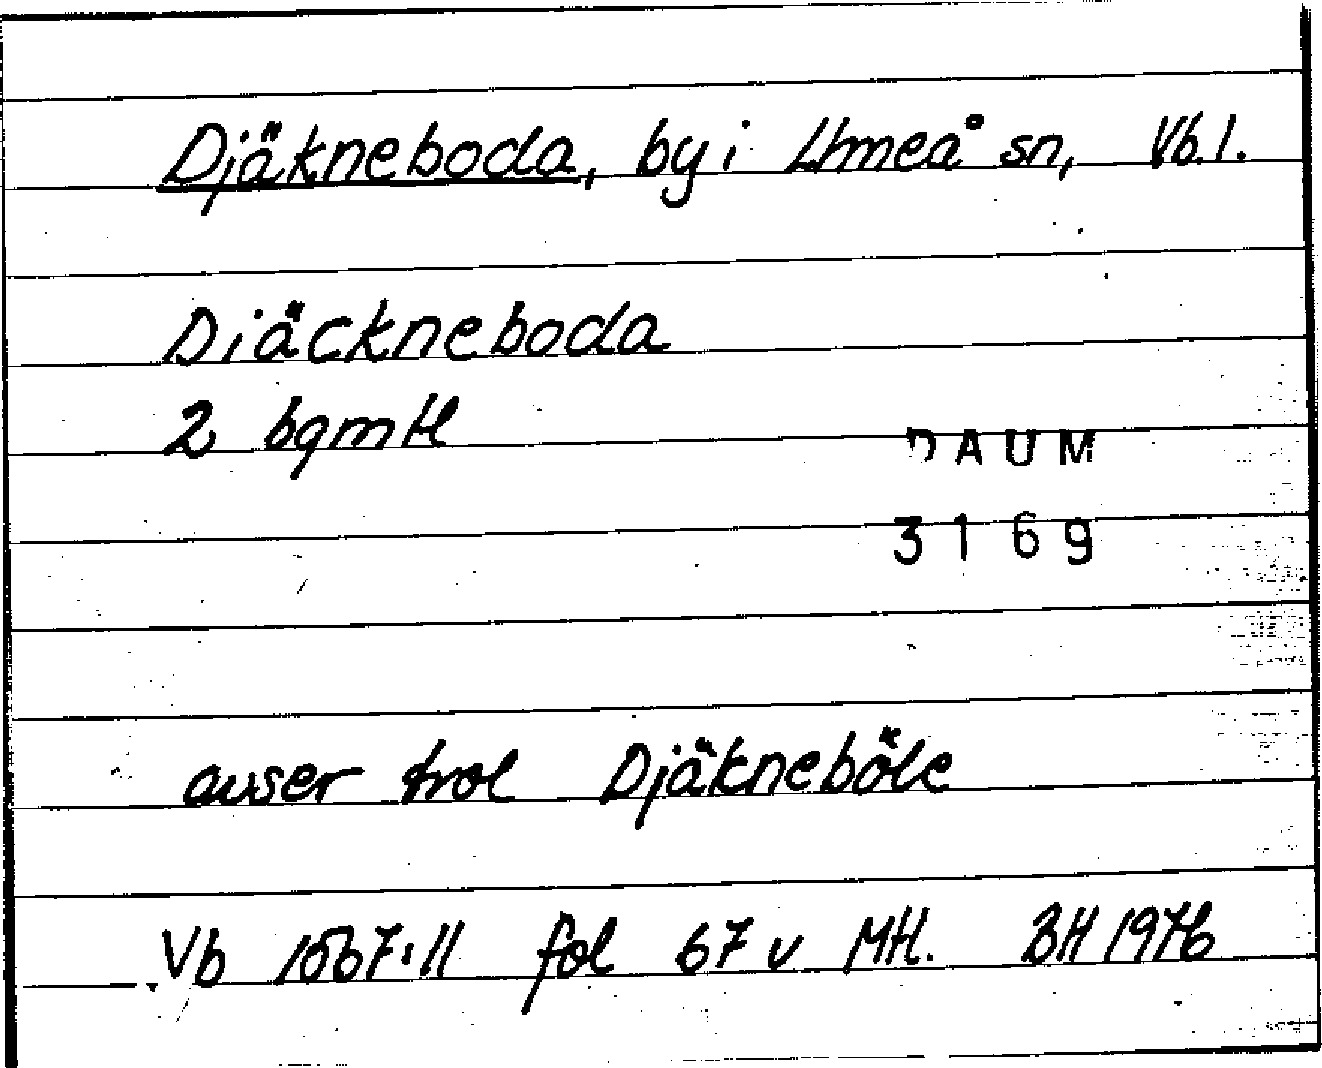 Djäkneboda, by i Umeå sn, Vb. l.
Diäckneboda
2 bgmtl
DAUM
3169
avser trol Djäkneböle
Vb 1567:11 fol 67 v MH. BH 1976